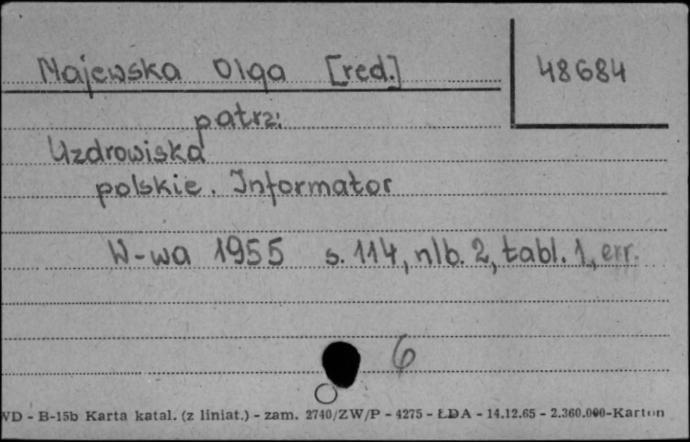 Majewska Olga [red.]
48684
patrz:
Uzdrowiska
polskie. Informator
W-wa 1955 s. 114, nlb. 2, tabl. 1, err.
6
WD - B-15b Karta katal. (z liniat.) - zam. 2740/ZW/P - 4275 - ŁDA - 14.12.65 - 2.360.000-Karton